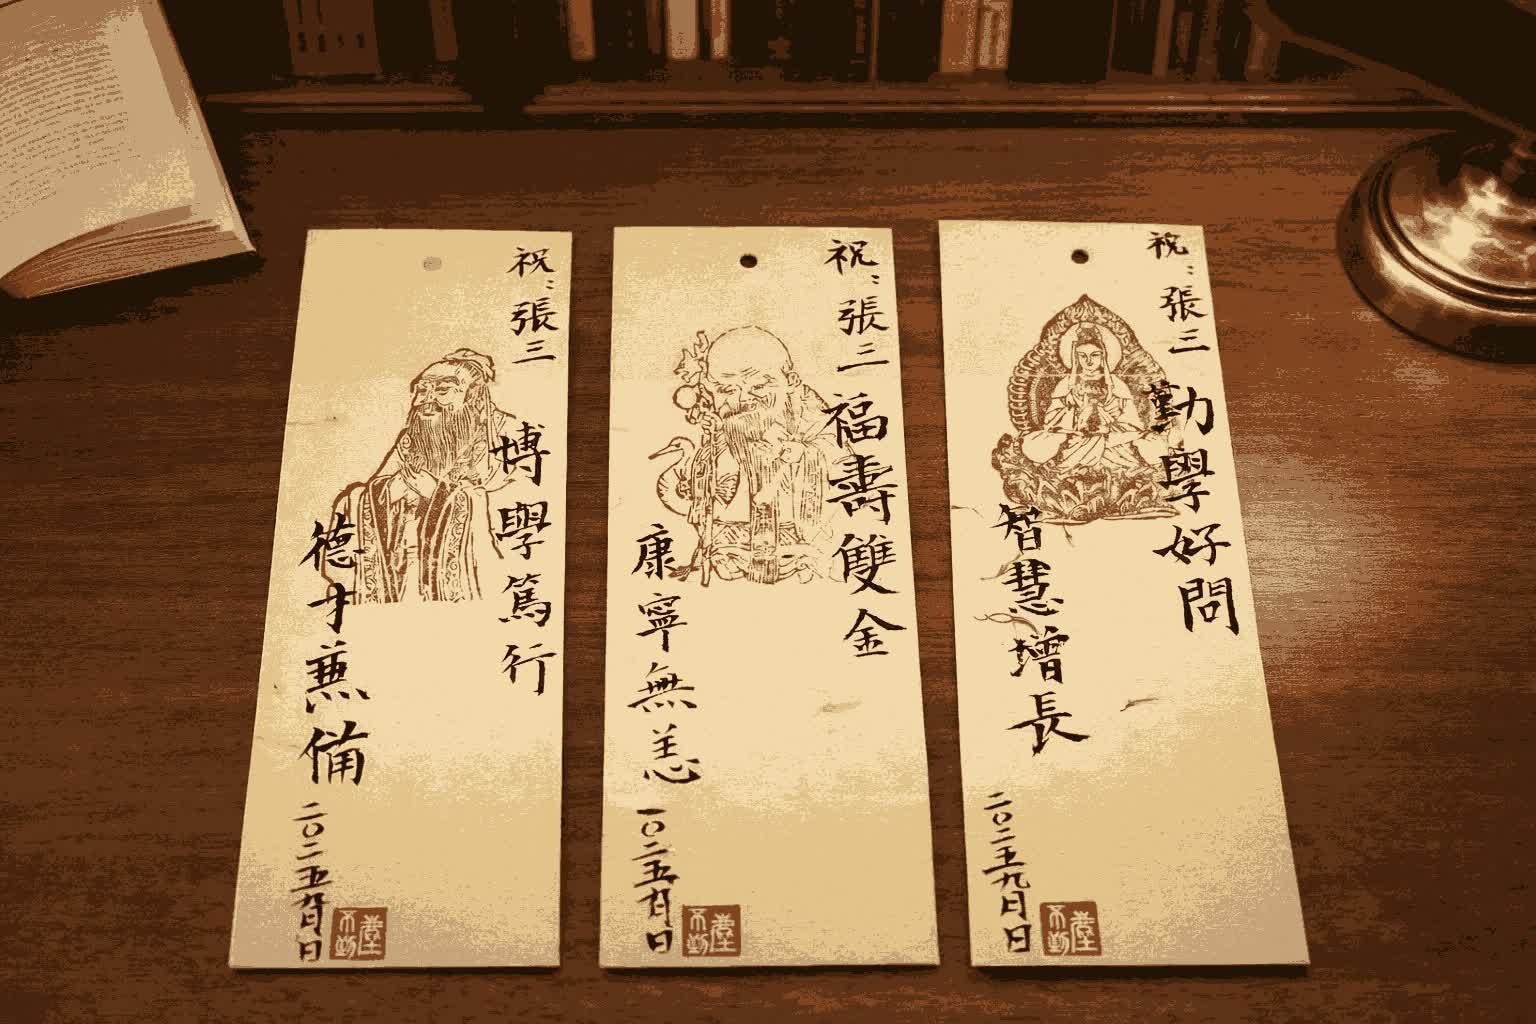 祝:張三
博學篤行
德才兼備
二〇二五九月日
祝:張三
福壽雙金
康寧無恙
一〇二五九月日
祝:張三
勤學好問
智慧增長
二〇二五九月日